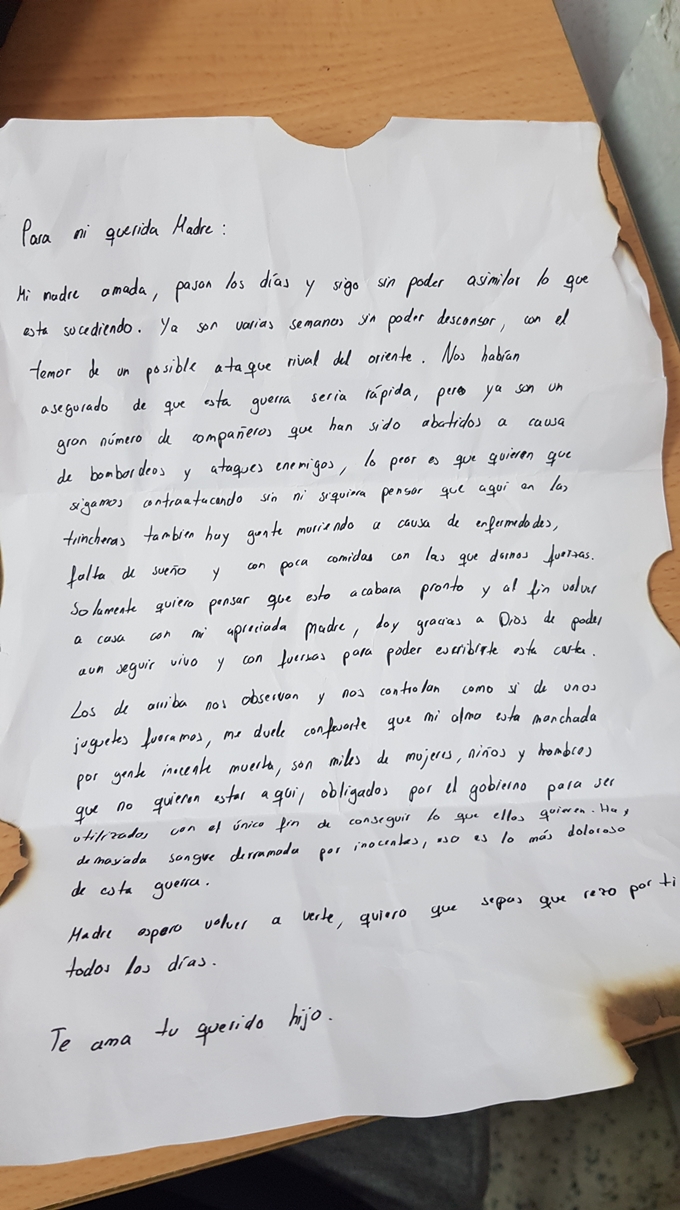 Para mi querida Madre:
Mi madre amada, pasan los días y sigo sin poder asimilar lo que
esta sucediendo. Ya son varias semanas sin poder descansar, con el
temor de un posible ataque rival del oriente. Nos habían
asegurado de que esta guerra seria rápida, pero ya son un
gran número de compañeros que han sido abatidos a causa
de bombardeos y ataques enemigos, lo peor es que quieren que
sigamos contraatacando sin ni siquiera pensar que aqui en las
trincheras tambien hay gente muriendo a causa de enfermedades,
falta de sueño y con poca comidas con las que darnos fuerzas.
Solamente quiero pensar que esto acabara pronto y al fin volver
a casa con mi apreciada Madre, doy gracias a Dios de poder
aun seguir vivo y con fuersas para poder escribirte esta carta.
Los de arriba nos observan y nos controlan como si de unos
juguetes fueramos, me duele confesarte que mi alma esta manchada
por gente inocente muerta, son miles de mujeres, niños y hombres
que no quieren estar aqui, obligados por el gobierno para ser
utilizados con el único fin de conseguir lo que ellos quieren. Hay
demasiada sangre derramada por inocentes, eso es lo más doloroso
de esta guerra.
Madre espero volver a verte, quiero que sepas que rezo por ti
todos los días.
Te ama tu querido hijo.